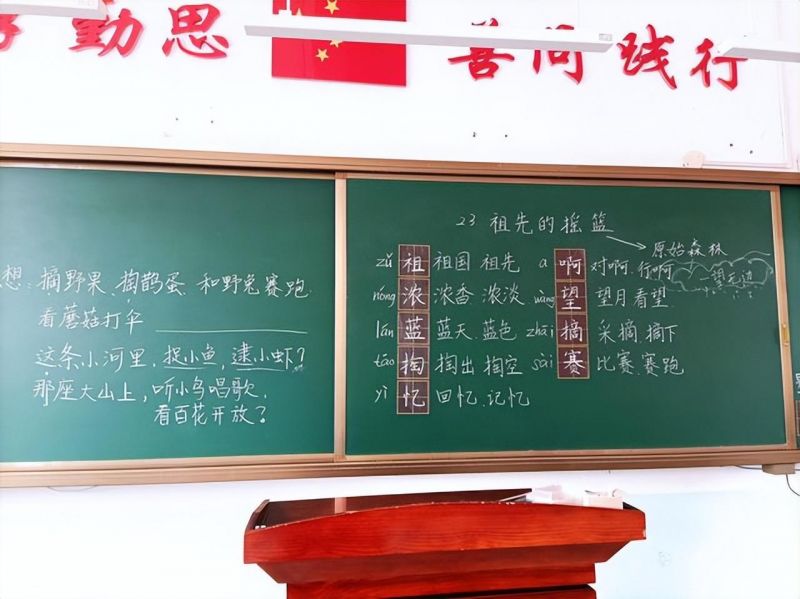 勤思
善问 践行
想: 摘野果、掏鹊蛋 和野兔赛跑
看蘑菇打伞
这条小河里,捉小鱼,逮小虾?
那座大山上,听小鸟唱歌,
看百花开放?
23 祖先的摇篮
原始森林
望无边
zǔ 祖 祖国 祖先 a 啊 对啊.行啊
nóng 浓 浓香 浓淡 wàng 望 望月 看望
lán 蓝 蓝天.蓝色 zhāi 摘 采摘.摘下
tāo 掏 掏出 掏空 sài 赛 比赛.赛跑
yì 忆 回忆.记忆